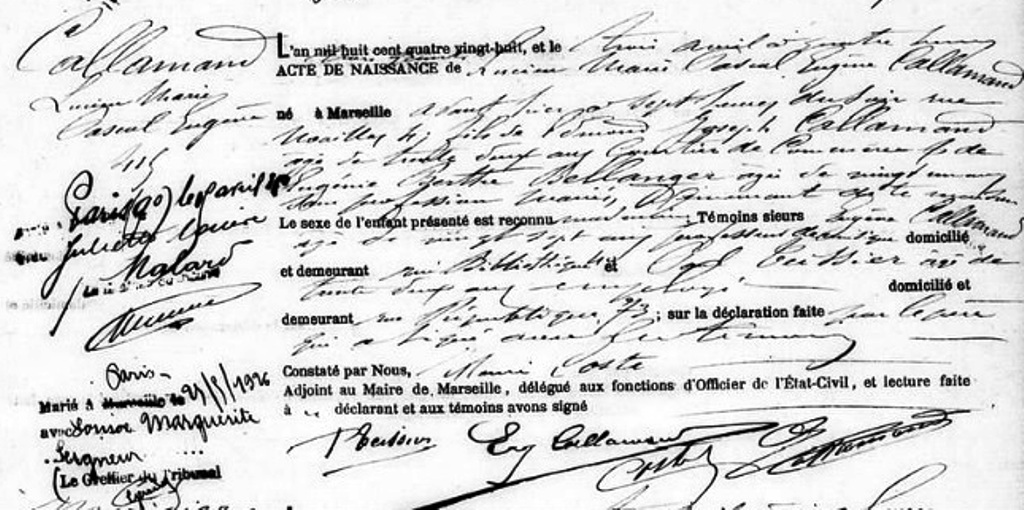 Callamand
Lucien Marie
Pascal Eugène
415
Paris (9e) le 9 avril
Juliette Louise
Malard
L'an mil huit cent quatre vingt-huit, et le trois avril à quatre heures
ACTE DE NAISSANCE de Lucien Marie Pascal Eugène Callamand
né à Marseille avant hier à sept heures du soir rue
Noailles 4, fils de Edmond Joseph Callamand
âgé de trente deux ans Courtier de Commerce & de
Eugénie Berthe Bellanger âgée de vingt un ans
sans profession mariés,
Le sexe de l'enfant présenté est reconnu masculin ; Témoins sieurs Eugène Callamand
âgé de vingt sept ans professeur de musique domicilié
et demeurant rue Bibliothèque et Teissier âgé de
trente deux ans employé domicilié et
demeurant rue République 73 ; sur la déclaration faite par le père
qui a signé avec les témoins
Constaté par Nous, Marie Coste
Adjoint au Maire de Marseille, délégué aux fonctions d'Officier de l'État-Civil, et lecture faite
à déclarant et aux témoins avons signé
Teissier Eug Callamand Coste Callamand
Paris
Marié à Marseille le 21/8/1926
avec Marguerite
Seigneur
(Le Greffier du Tribunal